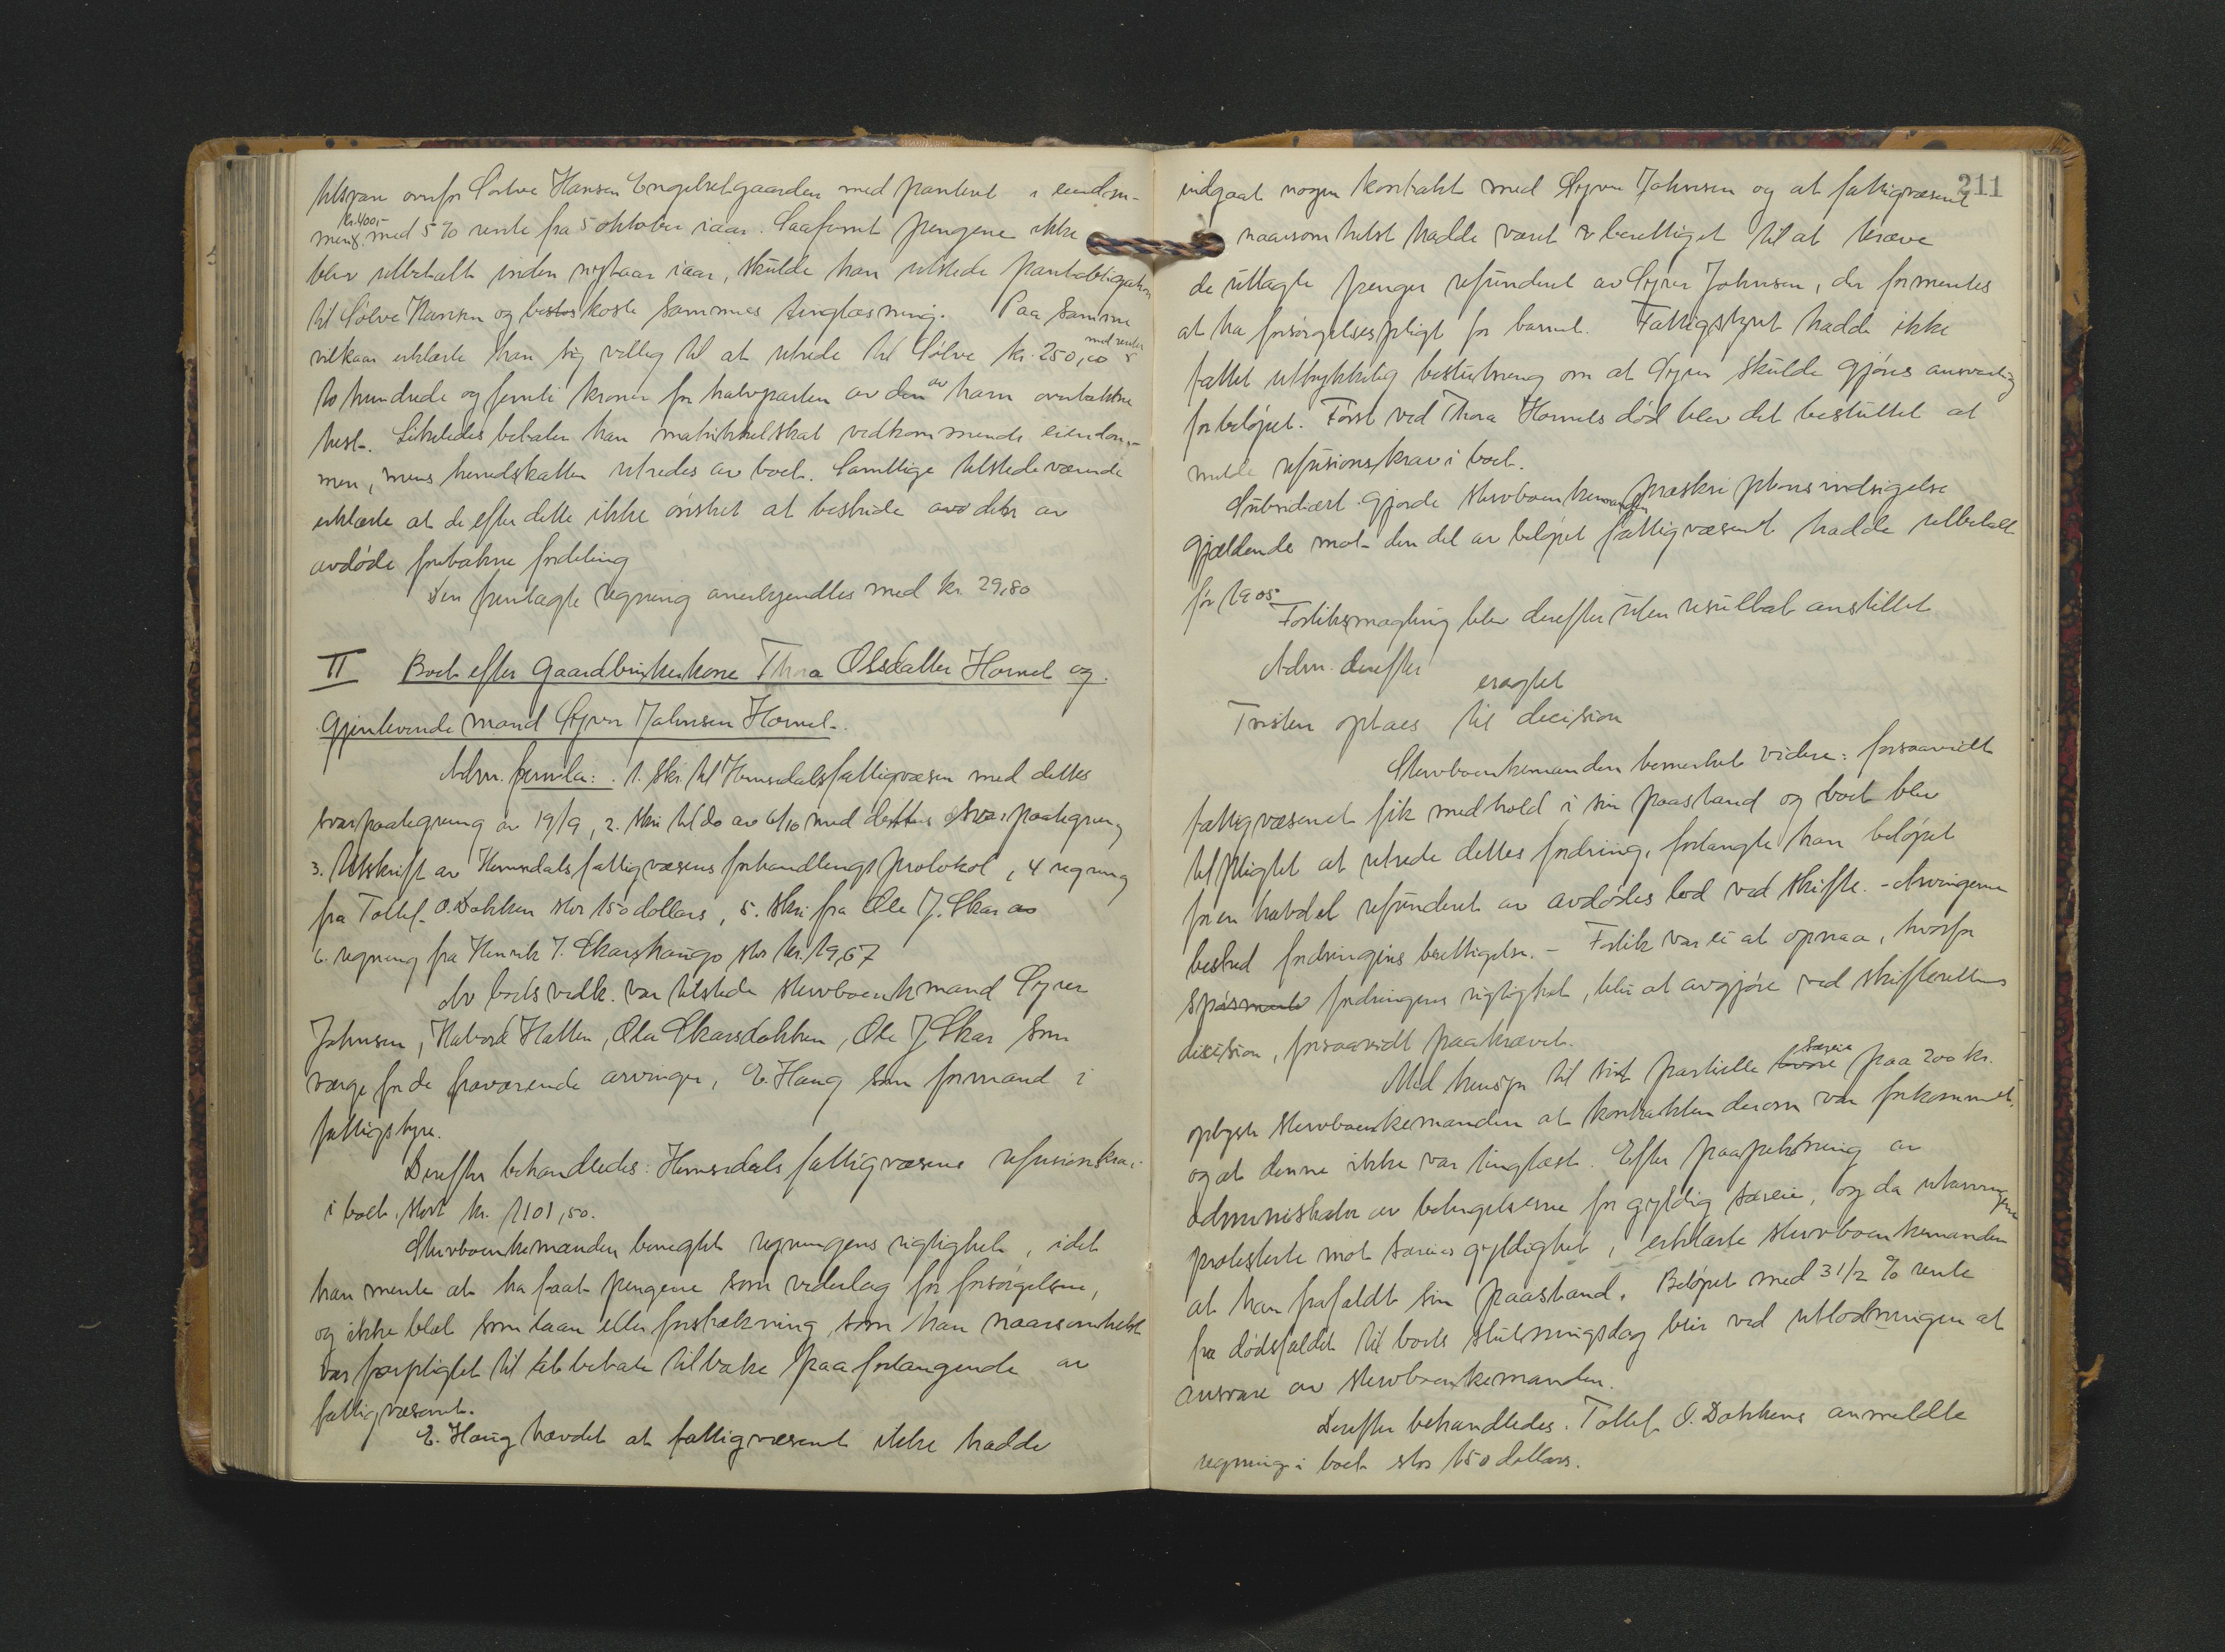 tilsvare ovenfor Sølve Hansen Engebretgaarden med panteret i eiendom-
men, kr. 400,- med 5 % rente fra 5 oktober iaar. Saafremt pengene ikke
blev utbetalt inden nytaar iaar, skulde han utstede pantobligation
til Sølve Hansen og bekoste sammes tinglæsning. Paa samme
vilkaar erklærte han sig villig til at utrede til Sølve kr. 250,00 med renter
to hundrede og femti kroner for halvparten av den av ham overtatte
hest. Likeledes betaler han matrikkelskat vedkommende eiendom-
men, mens herredskatten utredes av boet. Samtlige tilstedeværende
erklærte at de efter dette ikke ønsket at bestride den av
avdøde foretakne fordeling
Den fremlagte regning anerkjendtes med kr. 29,80
II Boet efter gaardbrukerkone Thora Olsdatter Hornet og
gjenlevende mand Syver Johnsen Hornet.
Adm. fremla: 1. skr. til Hemsedals fattigvæsen med dettes
svarpaategning av 19/9, 2. skr. til do av 6/10 med dettes svarpaategning
3. Utskrift av Hemsedals fattigvæsens forhandlingsprotokol, 4 regning
fra Tollef O. Dokken stor 150 dollars, 5. skr. fra Ole J. Skar
6. regning fra Henrik J. Skarshaugo stor kr. 19,67
Av boets vedk. var tilstede stervboenkemand Syver
Johnsen, Halvord Hatten, Ola Skarsdokken, Ole J. Skar som
værge for de fraværende arvinger, E. Haug som formand i
fattigstyre.
Derefter behandledes: Hemsedals fattigvæsens refusionskrav
i boet, stort kr. 1101,50.
Stervboenkemanden benegtet regningens rigtighet, idet
han mente at ha faat pengene som vederlag for forsørgelsen,
og ikke blot som laan eller forstrækning, som han naarsomhelst
var forpligtet til at betale tilbake paa forlangende av
fattigvæsenet.
E. Haug hævdet at fattigvæsenet ikke hadde
211
indgaat nogen kontrakt med Syver Johnsen og at fattigvæsenet
naarsomhelst hadde været berettiget til at kræve
de uttagte penger refunderet av Syver Johnsen, der formentes
at ha forsørgelsespligt for barnet. Fattigstyret hadde ikke
fattet uttrykkelig beslutning om at Syver skulde gjøres ansvarlig
for beløpet. Først ved Thora Hornets død blev det besluttet at
melde refusionskrav i boet.
Subsidiært gjorde stervboenkemanden præskriptionsindsigelse
gjældende mot den del av beløpet fattigvæsenet hadde utbetalt
før 1905
Forliksmægling blev derefter uten resultat anstillet
Adm. derefter
eragtet
Tvisten optaes til decision
Stervboenkemanden bemerket videre: forsaavidt
fattigvæsenet fik medhold i sin paastand og boet blev
tilpligtet at utrede dettes fordring, forlangte han beløpet
for en halvdel refunderet av avdødes lod ved skifte. - Arvingerne
bestred fordringens berettigelse. - Forlik var ei at opnaa, hvorfor
spørsmaalet fordringens rigtighet, blir at avgjøre ved skifterettens
decision, forsaavidt paakrævet.
Med hensyn til sit partielle særeie paa 200 kr.
oplyste stervboenkemanden at kontrakten derom var forkommet,
og at denne ikke var tinglæst. Efter paapekning av
administrator av betingelserne for gyldig særeie, og da utarvingerne
protesterte mot særeies gyldighet, erklærte stervboenkemanden
at han frafaldt sin paastand. Beløpet med 3 1/2 % rente
fra dødsfaldet til boets slutningsdag blir ved utlodningen at
ansvare av stervboenkemanden.
Derefter behandledes. Tollef O. Dokkens anmeldte
regning i boet stor 150 dollars.